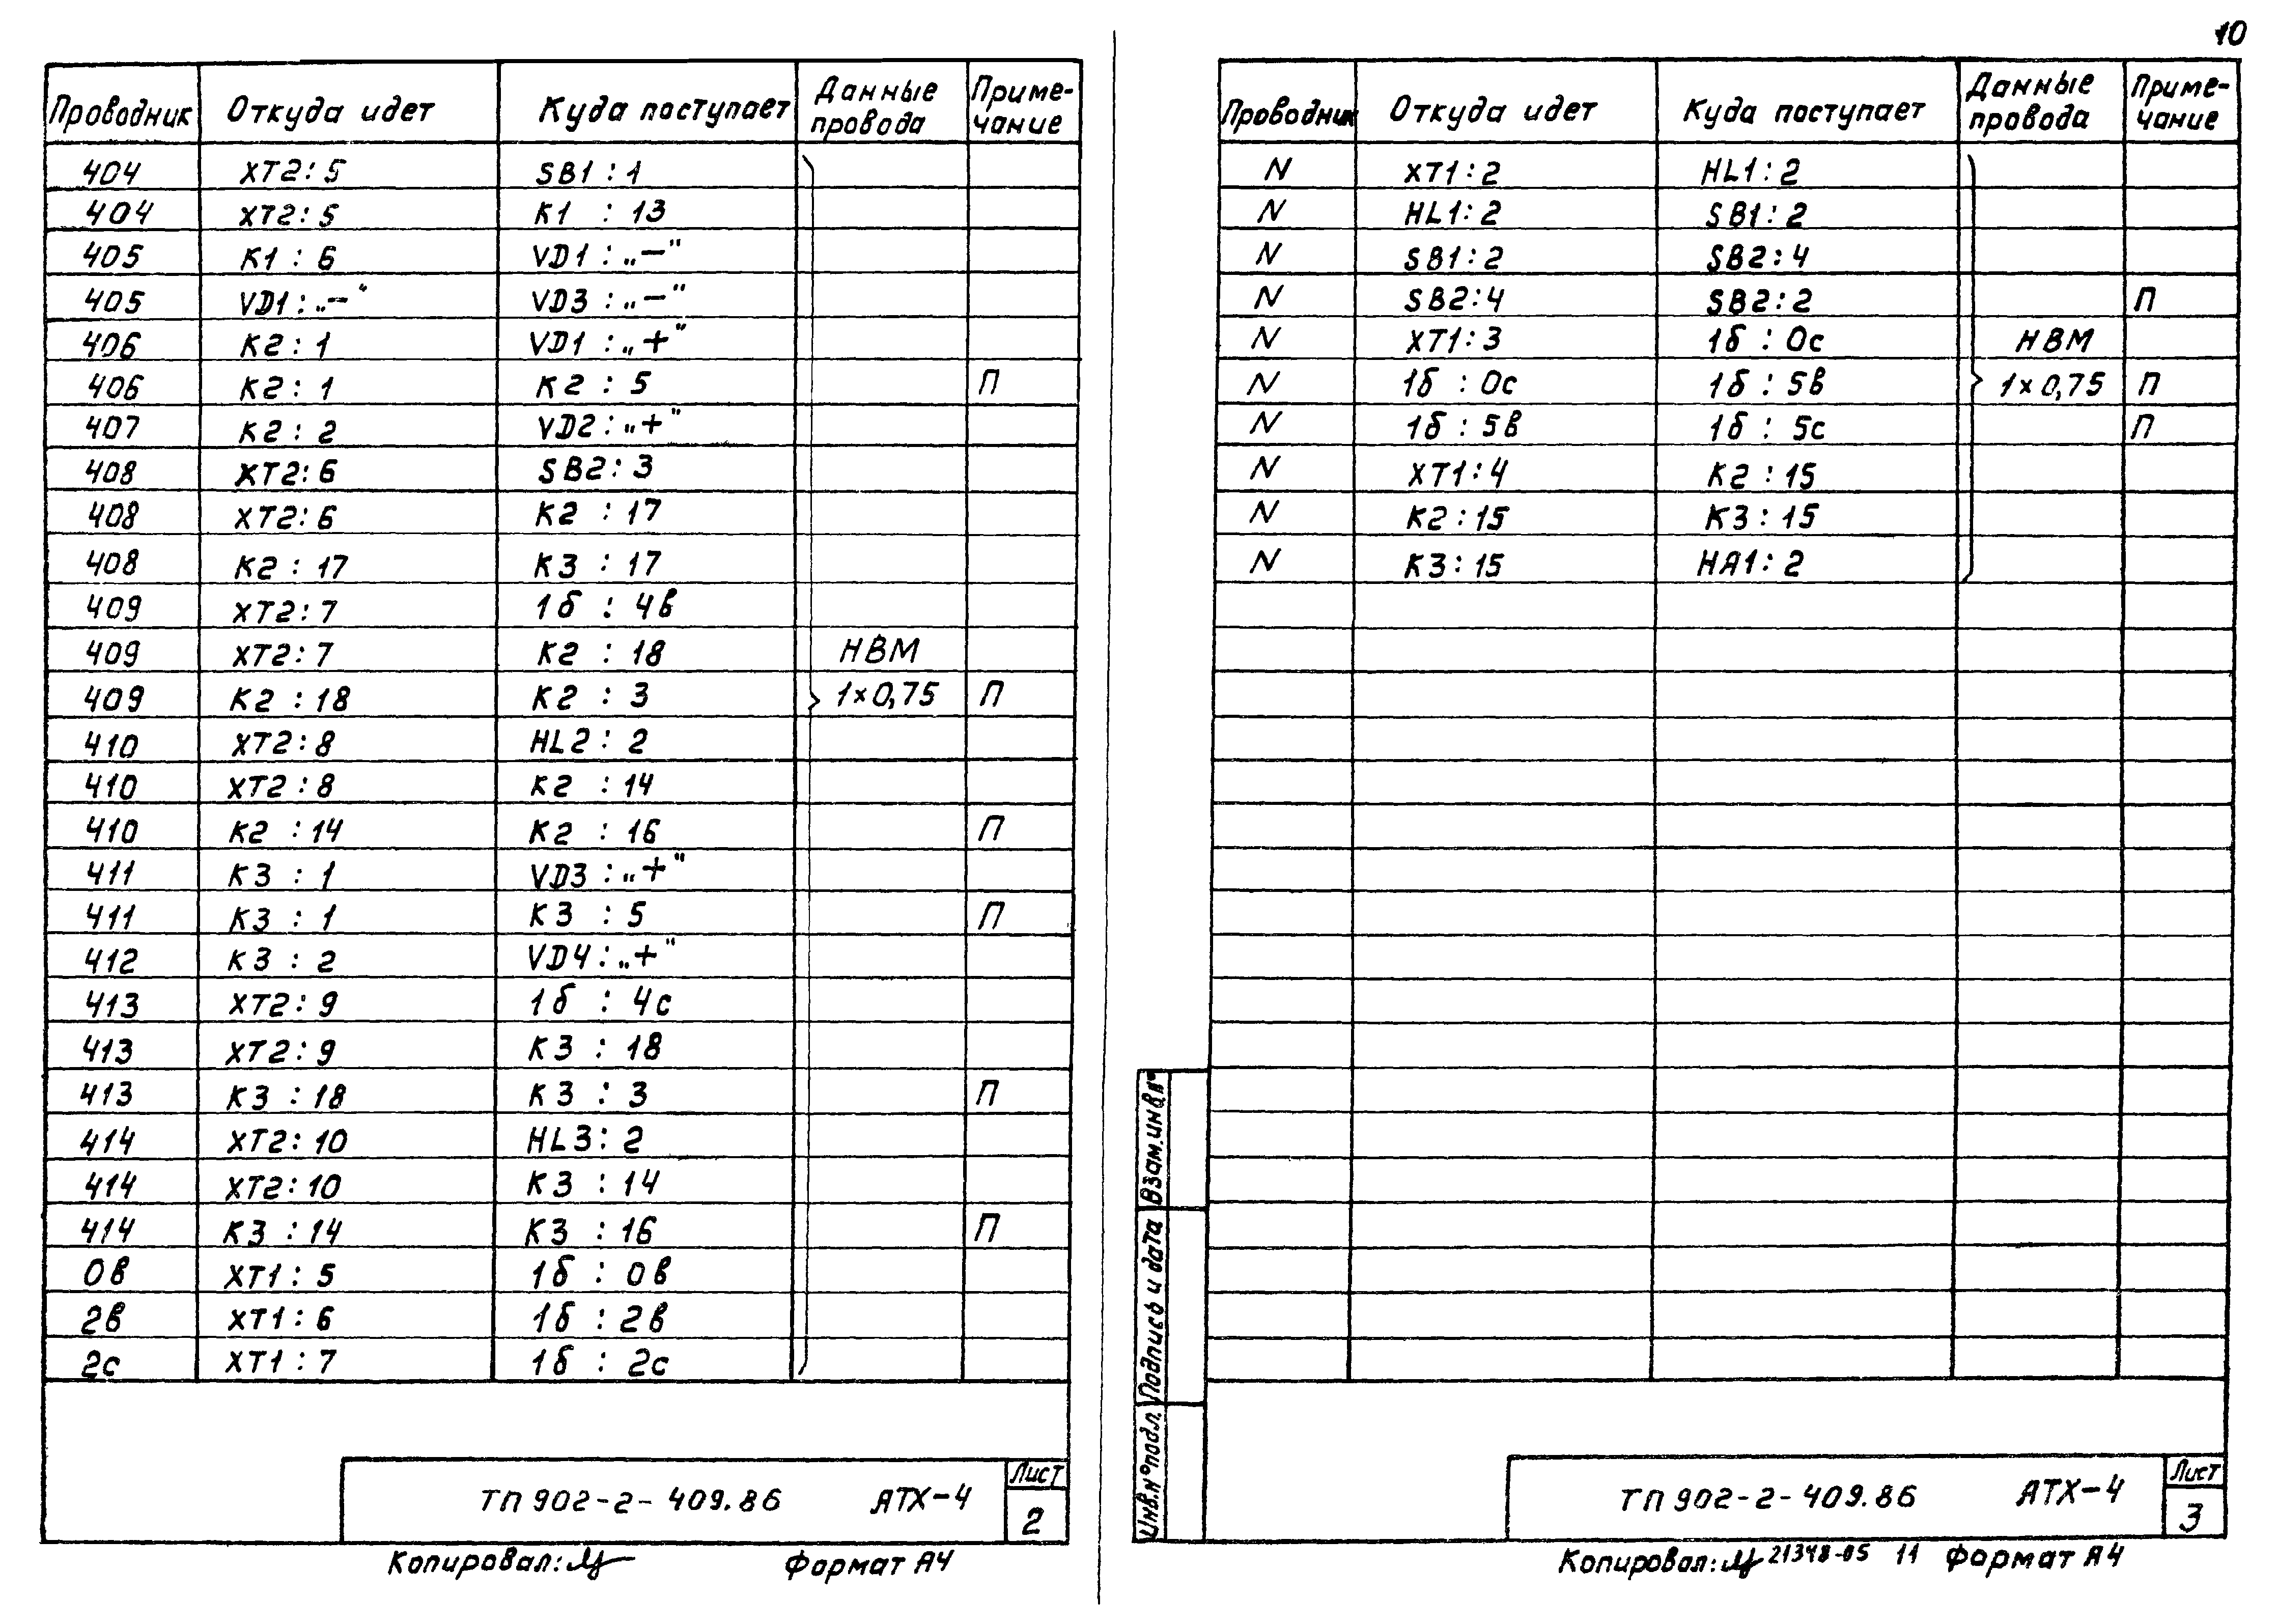 10
Проводник Откуда идет Куда поступает Данные провода Приме-чание
404 XT2:5 SB1:1
404 XT2:5 K1 :13
405 K1:6 VD1:„—"
405 VD1:„—" VD3:„—"
406 K2:1 VD1:„+"
406 K2:1 K2 :5 П
407 K2:2 VD2:„+"
408 XT2:6 SB2:3
408 XT2:6 K2 :17
408 K2:17 K3 :17
409 XT2:7 1б :4в
409 XT2:7 K2 :18 НВМ
409 K2:18 K2 :3 1×0,75 П
410 XT2:8 HL2:2
410 XT2:8 K2 :14
410 K2 :14 K2 :16 П
411 K3 :1 VD3:„+"
411 K3 :1 K3 :5 П
412 K3 :2 VD4:„+"
413 XT2:9 1б :4с
413 XT2:9 K3 :18
413 K3 :18 K3 :3 П
414 XT2:10 HL3:2
414 XT2:10 K3 :14
414 K3 :14 K3 :16 П
0в XT1:5 1б :0в
2в XT1:6 1б :2в
2с XT1:7 1б :2с
ТП 902-2-409.86 АТХ-4
Лист
2
Копировал: Формат А4
Проводник Откуда идет Куда поступает Данные провода Приме-чание
N XT1:2 HL1:2
N HL1:2 SB1:2
N SB1:2 SB2:4
N SB2:4 SB2:2 П
N XT1:3 1б :0с НВМ
N 1б :0с 1б :5в 1×0,75 П
N 1б :5в 1б :5с П
N XT1:4 K2 :15
N K2:15 K3:15
N K3:15 HA1:2
Взам.инв.№
Подпись и дата
Инв.№подл.
ТП 902-2-409.86 АТХ-4
Лист
3
Копировал: 21348-05 11 Формат А4